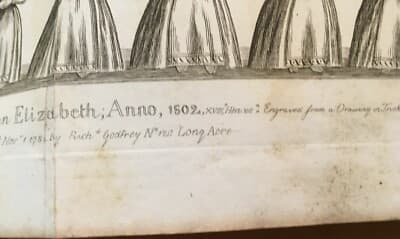 n Elizabeth; Anno, 1502, Engraved from a Drawing in
Novr. 1 178 by Richd. Godfrey No. 120 Long Acre